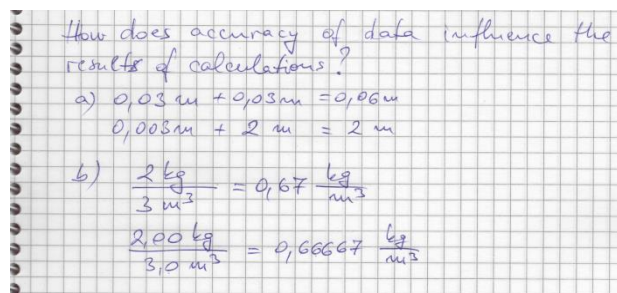 How does accuracy of data influence the
results of calculations?
a) 0,03 m + 0,03 m = 0,06 m
0,003 m + 2 m = 2 m
b) 2 kg / 3 m³ = 0,67 kg/m³
2,00 kg / 3,0 m³ = 0,66667 kg/m³